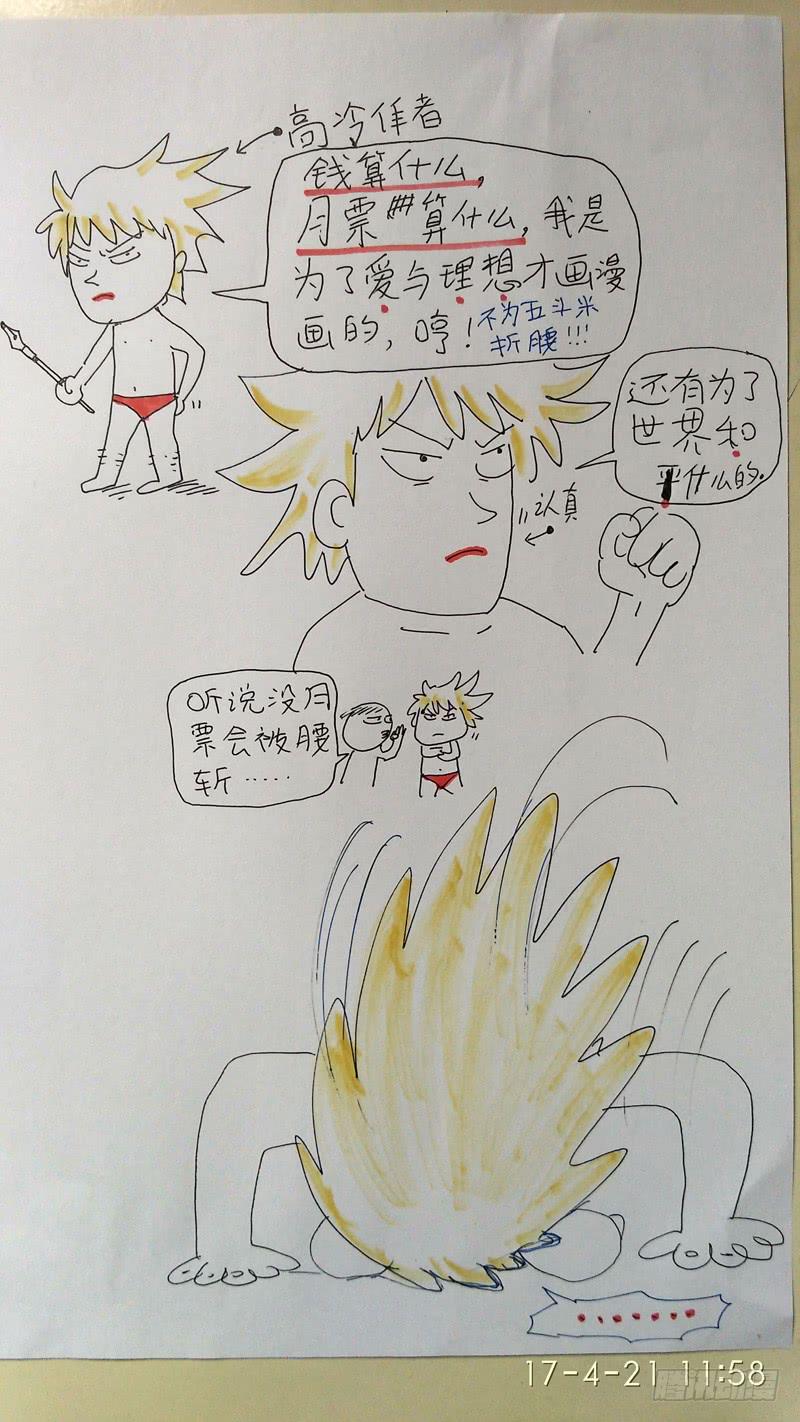 高冷作者
钱算什么,
月票算什么,我是
为了爱与理想才画漫
画的,哼!不为五斗米
折腰!!!
还有为了
世界和
平什么的.
认真
听说没月
票会被腰
斩……
.......
17-4-21 11:58
腾讯动漫